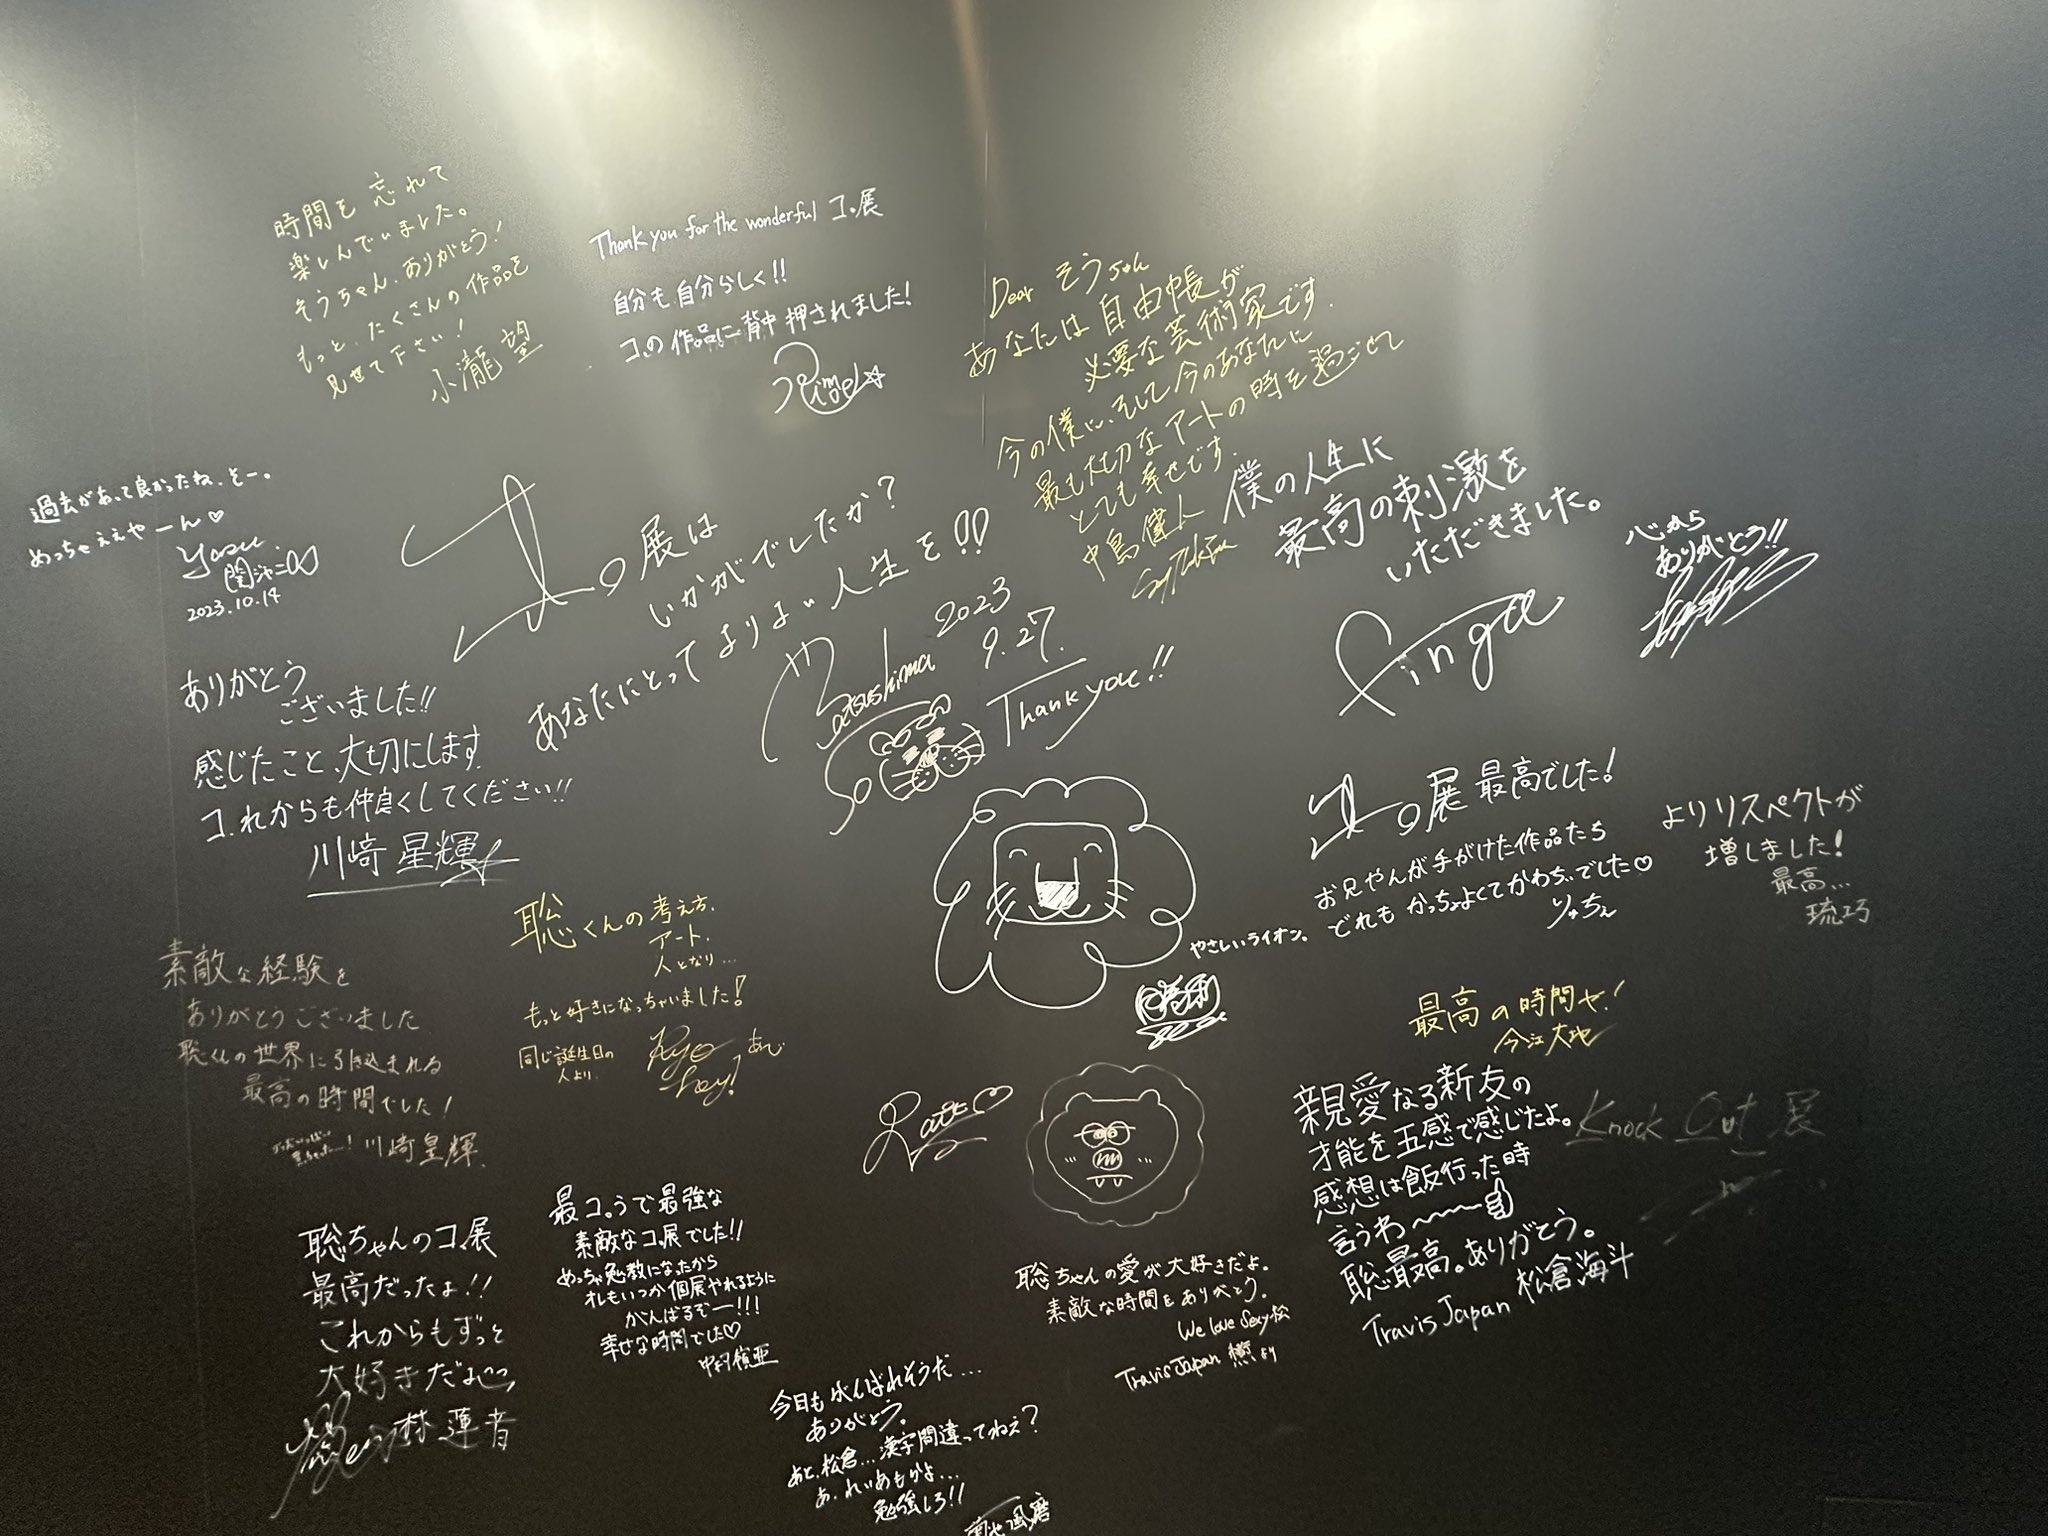 時間を忘れて
楽しんでいました。
そうちゃん、ありがとう!
もっと、たくさんの作品を
見せて下さい!
小瀧望
Thank you for the wonderful コ。展
自分も自分らしく!!
コ。の作品に背中押されました!
Dear そうちゃん
あなたは自由帳が
必要な芸術家です.
今の僕に、そして今のあなたに
最も大切なアートの時を過ごせて
とても幸せです.
中島健人
Sexy Zone
僕の人生に
最高の刺激を
いただきました。
finga
心から
ありがとう!!
過去があって良かったね、そー。
めっちゃええやーん♡
Yasu
関ジャニ∞
2023.10.14
コ。展は
いかがでしたか?
あなたにとってよりよい人生を!!
2023
9.27.
Matsushima
So
Thank you!!
ありがとう
ございました!!
感じたこと、大切にします
コ。れからも仲良くしてください!!
川﨑星輝
コ。展最高でした!
お兄やんが手がけた作品たち
どれもかっちょよくてかわちぃでした♡
りゅちぇ
よりリスペクトが
増しました!
最高...
琉巧
やさしいライオン。
聡くんの考え方、
アート、
人となり...
もっと好きになっちゃいました!
同じ誕生日の
人より
素敵な経験を
ありがとうございました
聡くんの世界に引き込まれる
最高の時間でした!
川﨑皇輝
最高の時間ヤ!
今江大地
親愛なる新友の
才能を五感で感じたよ。
感想は飯行った時
言うわ〜
聡最高。ありがとう。
Travis Japan 松倉海斗
Knock Out 展
聡ちゃんのコ。展
最高だったよ!!
これからもずっと
大好きだよ
林蓮音
最コ。うで最強な
素敵なコ。展でした!!
めっちゃ勉教になったから
オレもいつか個展やれるように
がんばるぞー!!!
幸せな時間でした♡
聡ちゃんの愛が大好きだよ。
素敵な時間をありがとう。
We love Sexy松
Travis Japan より
今日もがんばれそうだ...
ありがとう。
あと、松倉...漢字間違ってねえ?
あ、れいあもかよ...
勉強しろ!!
菊池風磨